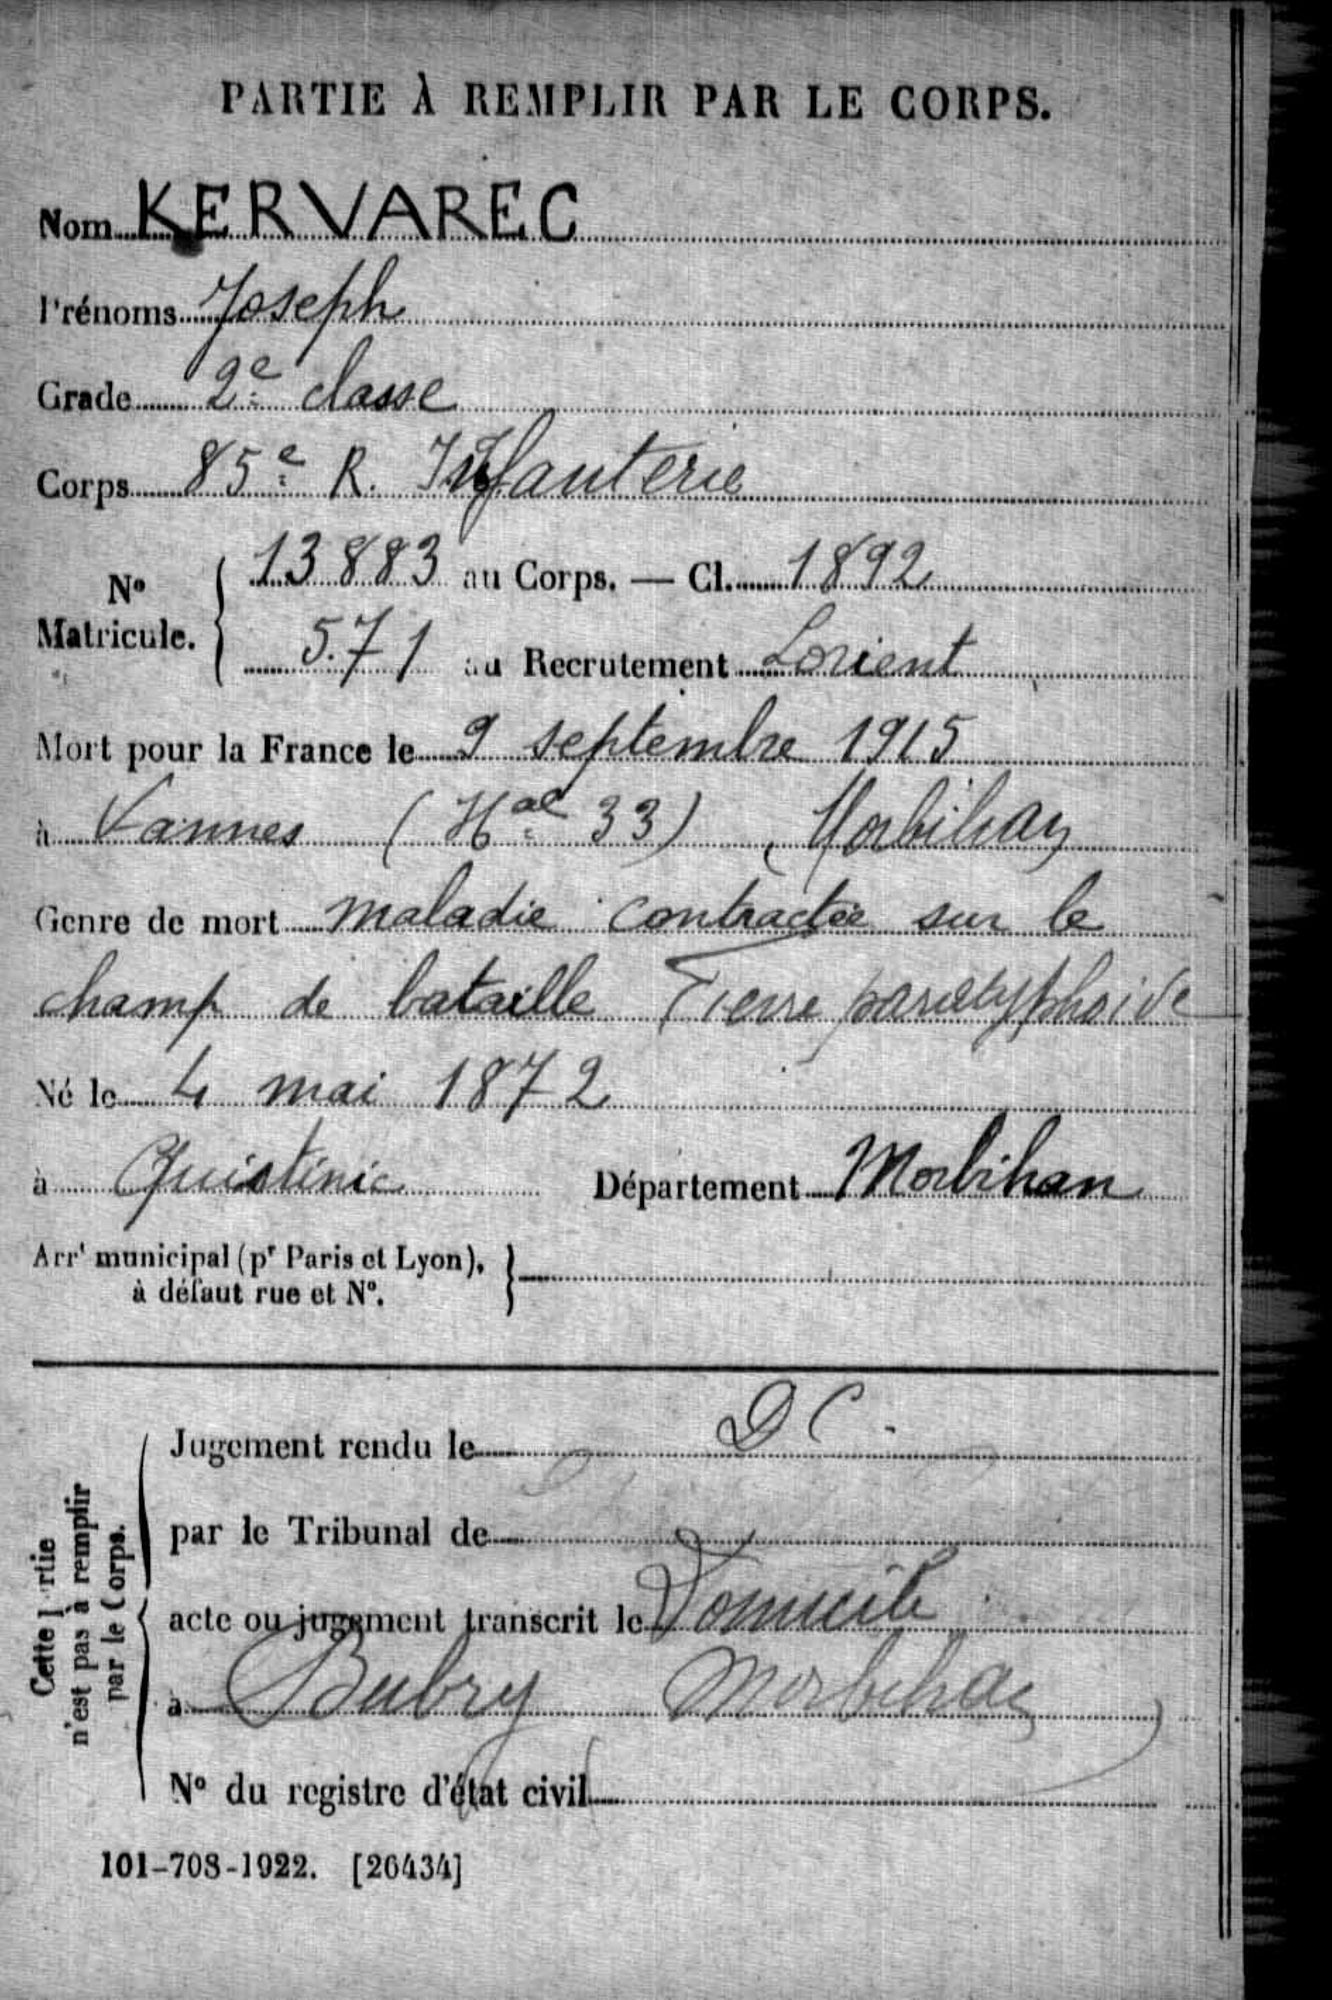 PARTIE À REMPLIR PAR LE CORPS.
Nom KERVAREC
Prénoms Joseph
Grade 2e classe
Corps 85e R. Infanterie
No Matricule. { 13883 au Corps. — Cl. 1892
571 au Recrutement Lorient
Mort pour la France le 9 septembre 1915
à Vannes (Hal 33) , Morbihan
Genre de mort maladie contractée sur le
champ de bataille Fievre paratyphoide
Né le 4 mai 1872
à Quistinic Département Morbihan
Arrt municipal (pr Paris et Lyon), }
à défaut rue et No.
Cette Partie
n'est pas à remplir
par le Corps.
Jugement rendu le DC
par le Tribunal de
acte ou jugement transcrit le Domicile
à Bubry Morbihan
No du registre d'état civil
101-708-1922. [26434]